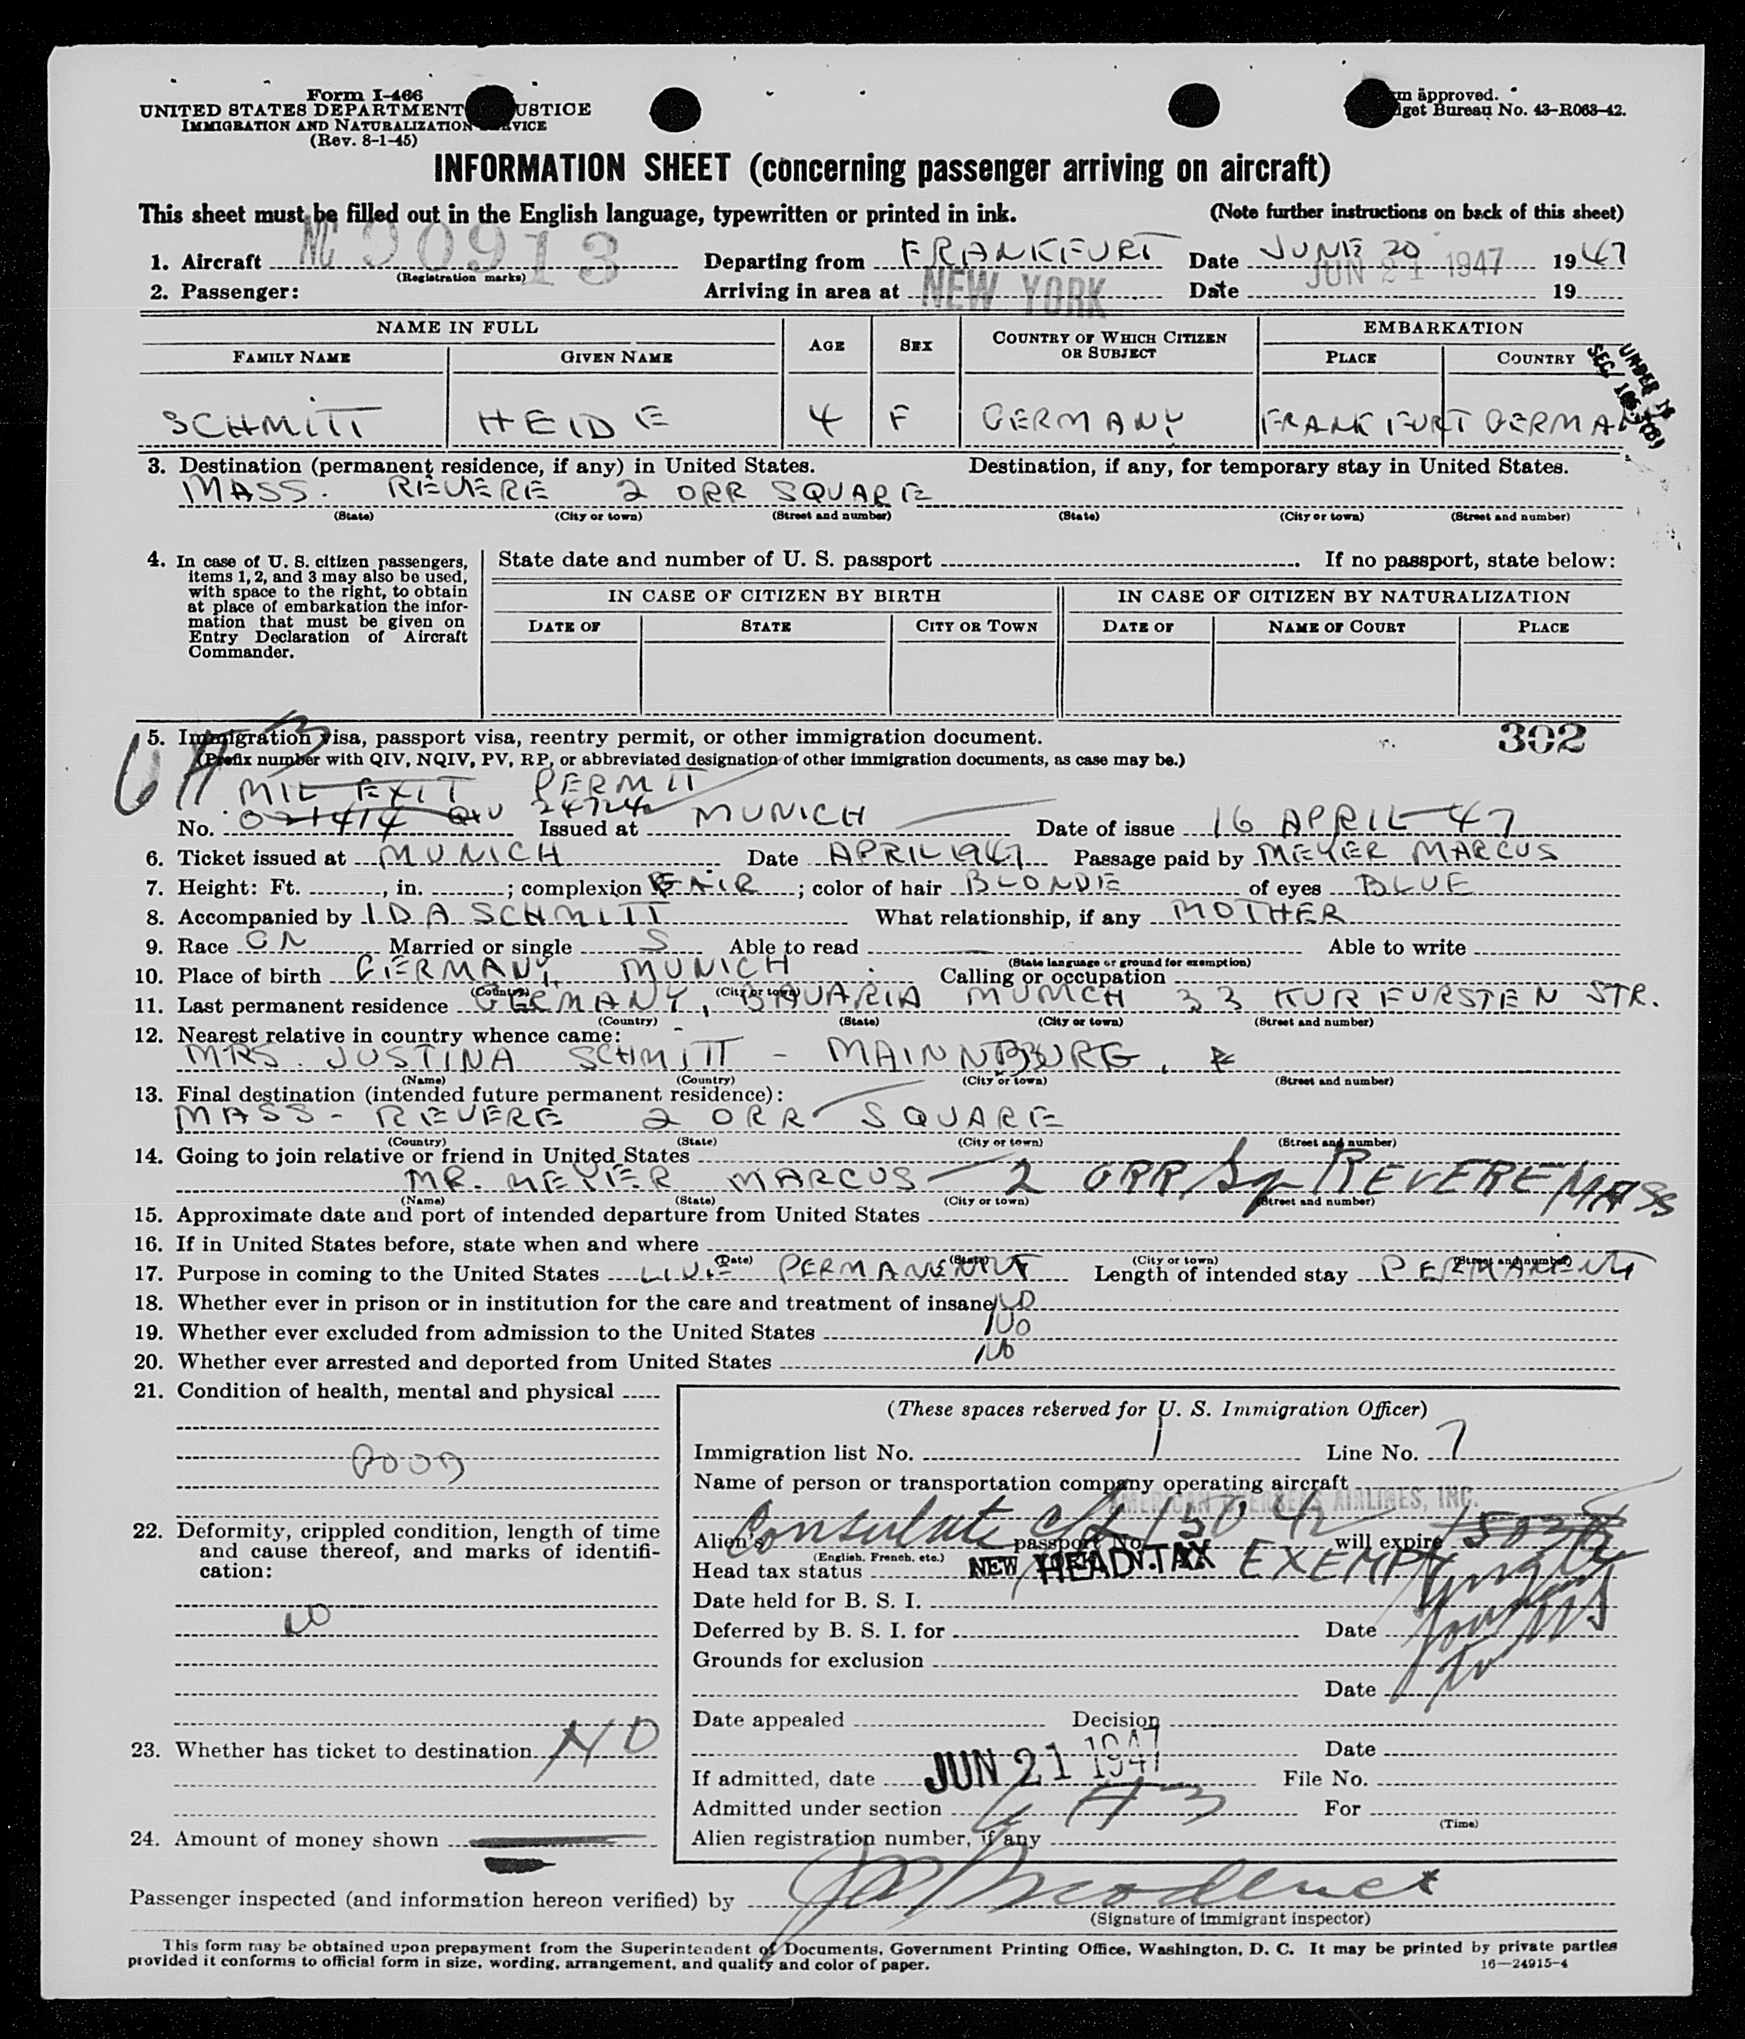 Form I-466
UNITED STATES DEPARTMENT USTICE
IMMIGRATION AND NATURALIZATION VICE
(Rev. 8-1-45)
m approved.
get Bureau No. 43-R063-42.
INFORMATION SHEET (concerning passenger arriving on aircraft)
This sheet must be filled out in the English language, typewritten or printed in ink. (Note further instructions on back of this sheet)
1. Aircraft NC 90913 Departing from FRANKFURT Date JUNE 20 1947
(Registration marks)
2. Passenger: Arriving in area at NEW YORK Date JUN 21 1947 19
NAME IN FULL AGE SEX COUNTRY OF WHICH CITIZEN OR SUBJECT EMBARKATION
FAMILY NAME GIVEN NAME PLACE COUNTRY
UNDER 16
SCHMITT HEIDE 4 F GERMANY FRANKFURT GERMA
3. Destination (permanent residence, if any) in United States. Destination, if any, for temporary stay in United States.
MASS. REVERE 2 ORR SQUARE
(State) (City or town) (Street and number) (State) (City or town) (Street and number)
4. In case of U. S. citizen passengers, items 1, 2, and 3 may also be used, with space to the right, to obtain at place of embarkation the information that must be given on Entry Declaration of Aircraft Commander.
State date and number of U. S. passport . If no passport, state below:
IN CASE OF CITIZEN BY BIRTH IN CASE OF CITIZEN BY NATURALIZATION
DATE OF STATE CITY OR TOWN DATE OF NAME OF COURT PLACE
302
5. Immigration visa, passport visa, reentry permit, or other immigration document.
(Prefix number with QIV, NQIV, PV, RP, or abbreviated designation of other immigration documents, as case may be.)
6A3
MIL EXIT PERMIT
No. 021414 QIV Issued at MUNICH Date of issue 16 APRIL 47
6. Ticket issued at MUNICH Date APRIL 1947 Passage paid by MEYER MARCUS
7. Height: Ft. , in. ; complexion FAIR ; color of hair BLONDE of eyes BLUE
8. Accompanied by IDA SCHMITT What relationship, if any MOTHER
9. Race Married or single S Able to read — Able to write
(State language or ground for exemption)
10. Place of birth GERMANY, MUNICH Calling or occupation
(Country) (City or town)
11. Last permanent residence GERMANY, BAVARIA MUNICH 33 KURFURSTEN STR.
(Country) (State) (City or town) (Street and number)
12. Nearest relative in country whence came:
MRS. JUSTINA SCHMITT - MAINNBURG,
(Name) (Country) (City or town) (Street and number)
13. Final destination (intended future permanent residence):
MASS - REVERE 2 ORR SQUARE
(Country) (State) (City or town) (Street and number)
14. Going to join relative or friend in United States
MR. MEYER MARCUS - 2 ORR Sq REVERE MASS
(Name) (State) (City or town) (Street and number)
15. Approximate date and port of intended departure from United States
16. If in United States before, state when and where
(Date) (State) (City or town) (Street and number)
17. Purpose in coming to the United States LIVE PERMANENT Length of intended stay PERMANENT
18. Whether ever in prison or in institution for the care and treatment of insane NO
19. Whether ever excluded from admission to the United States NO
20. Whether ever arrested and deported from United States NO
21. Condition of health, mental and physical
GOOD
22. Deformity, crippled condition, length of time and cause thereof, and marks of identification:
NO
23. Whether has ticket to destination NO
24. Amount of money shown
(These spaces reserved for U. S. Immigration Officer)
Immigration list No. 1 Line No. 7
Name of person or transportation company operating aircraft
AMERICAN OVERSEAS AIRLINES, INC.
Consulate
Alien's passport No. will expire
(English, French, etc.)
Head tax status HEAD TAX EXEMPT
Date held for B. S. I.
Deferred by B. S. I. for Date
Grounds for exclusion
Date
Date appealed Decision
Date
If admitted, date JUN 21 1947 File No.
Admitted under section 6A3 For
(Time)
Alien registration number, if any
Passenger inspected (and information hereon verified) by
(Signature of immigrant inspector)
This form may be obtained upon prepayment from the Superintendent of Documents, Government Printing Office, Washington, D. C. It may be printed by private parties
provided it conforms to official form in size, wording, arrangement, and quality and color of paper. 16—24915-4